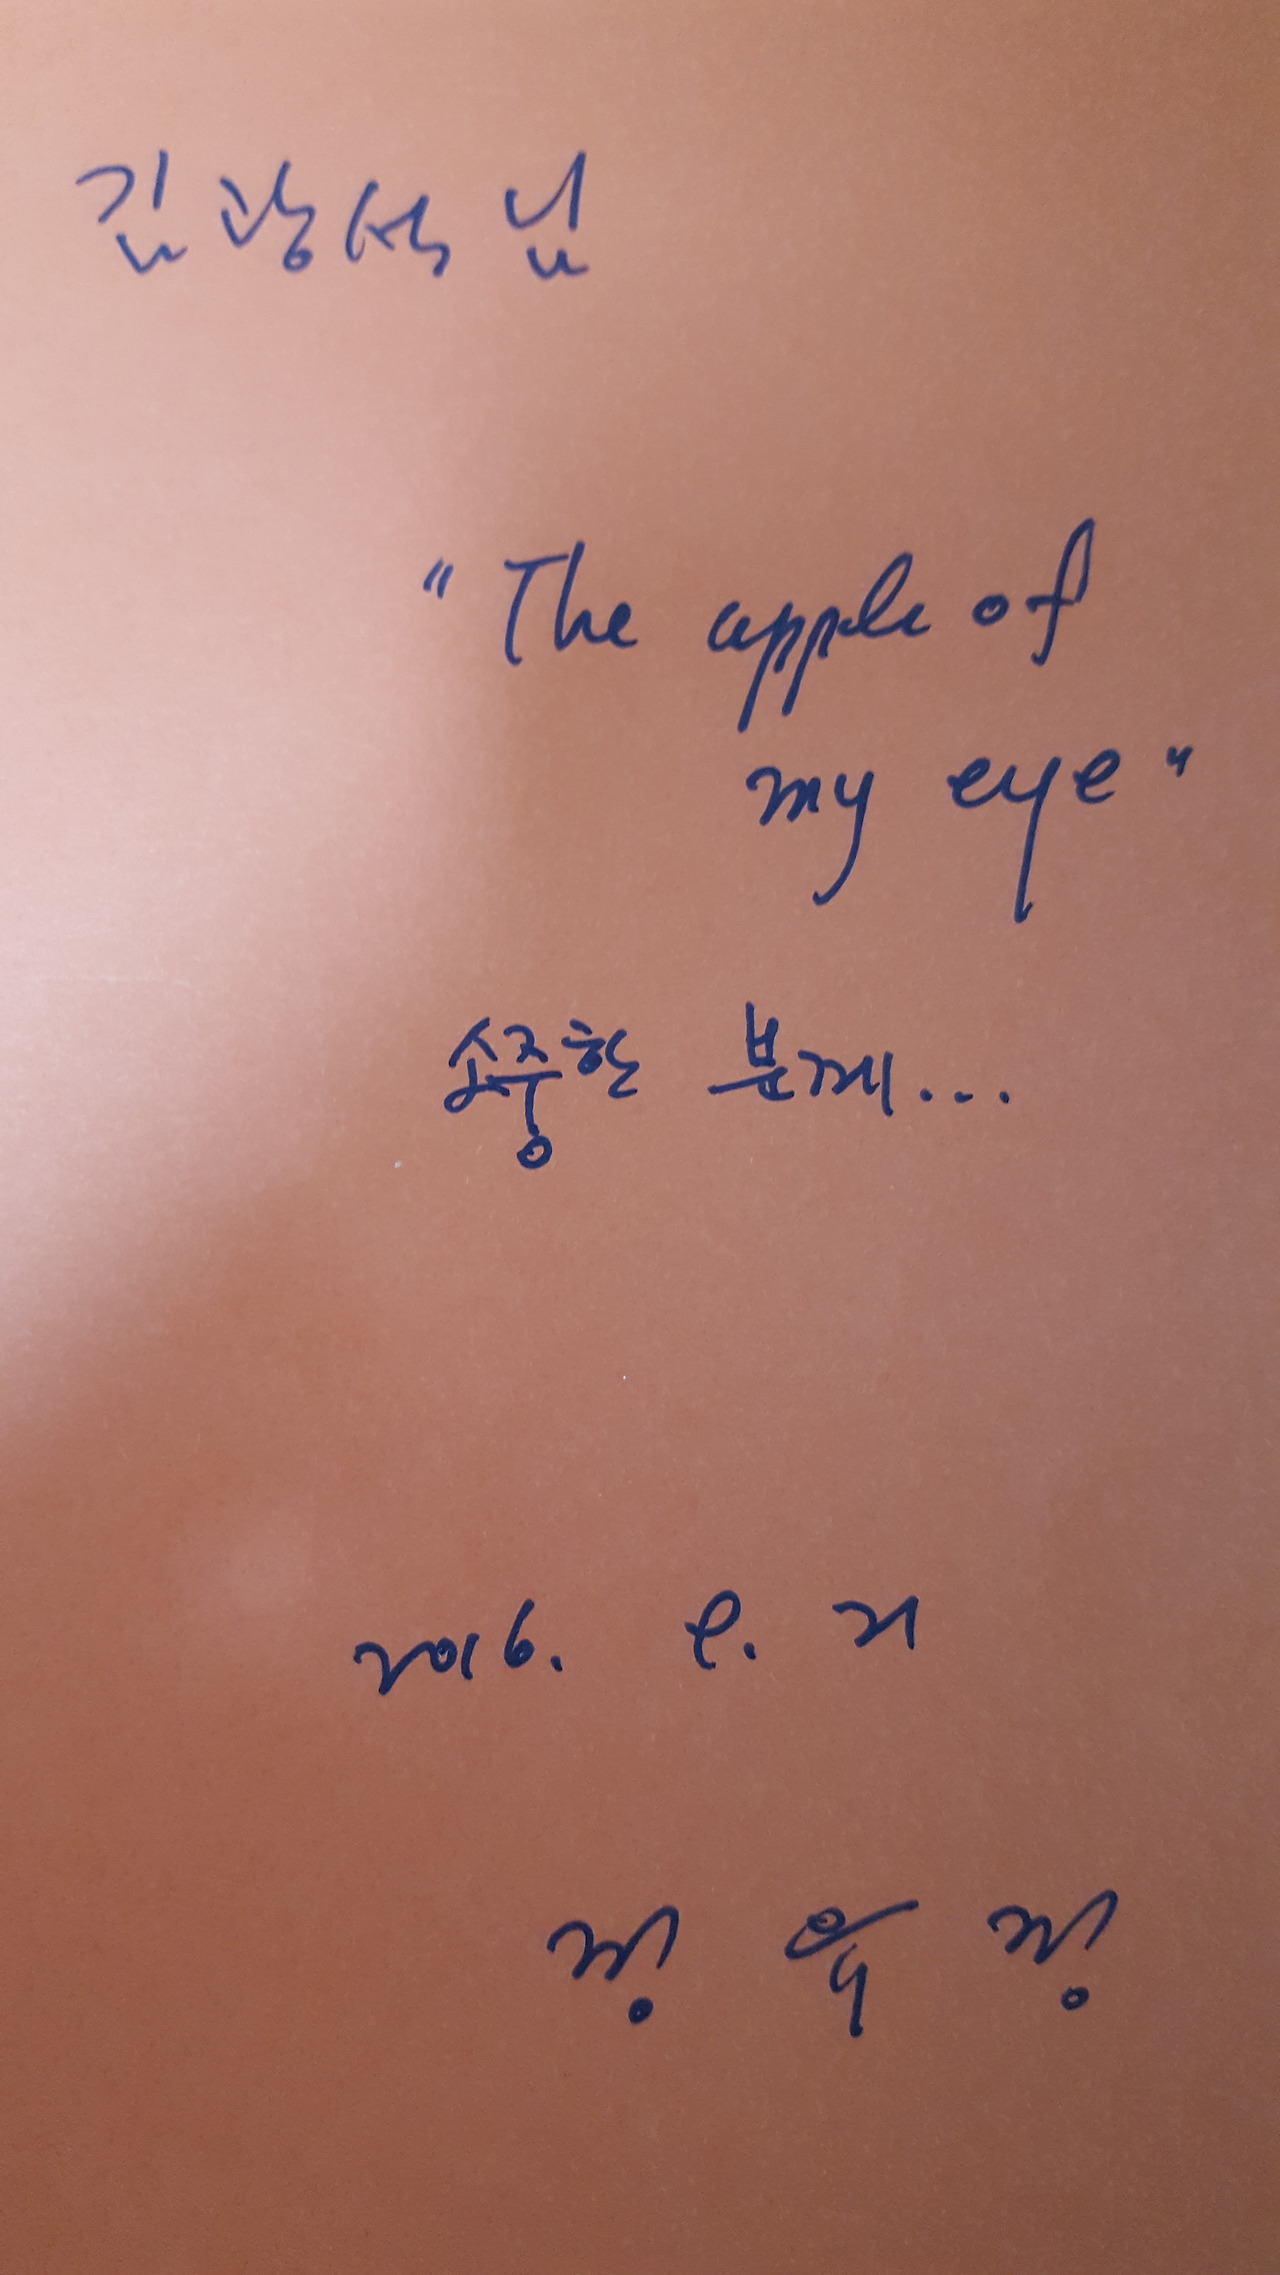 김광석님
"The apple of
my eye"
소중한 분께...
2016. 9. 21
정유정